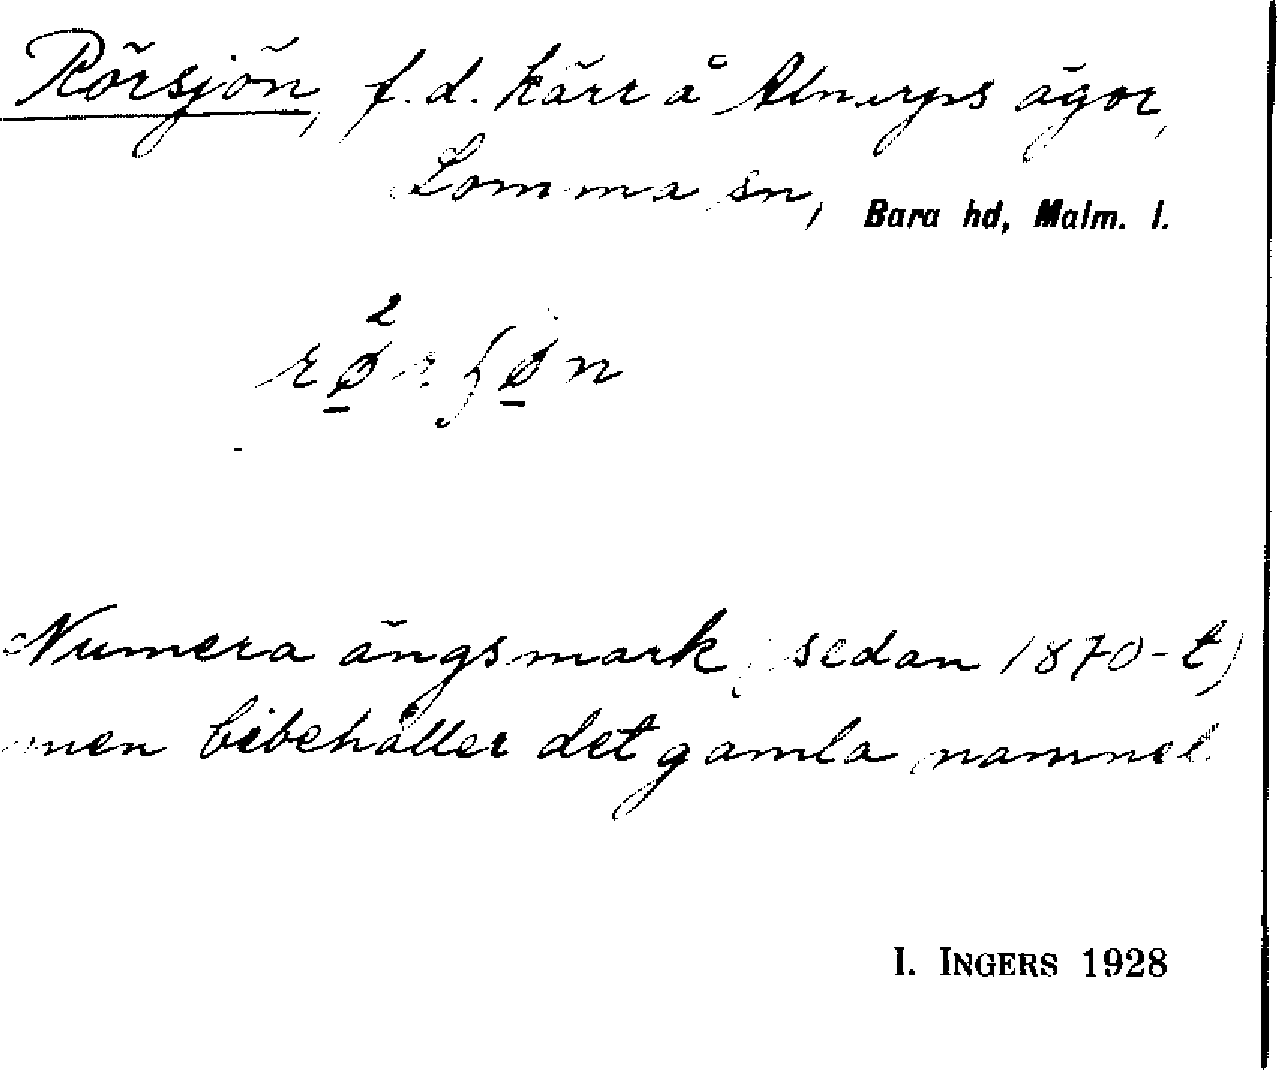 Rörsjön, f.d. kärr å Alnarps ägor,
Lomma sn, Bara hd, Malm. l.
Numera ängsmark (sedan 1870-t)
men bibehåller det gamla namnet.
I. INGERS 1928